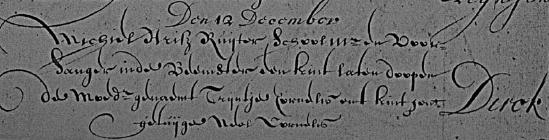 Den 12 December
Michiel Heijns Ruijter Schoolmr en Voor-
sanger inde Beemster een kint laten doopen
de Moedr genaemt Trijntje Cornelis ont kint heet Dirck
getuijge Neel Cornelis